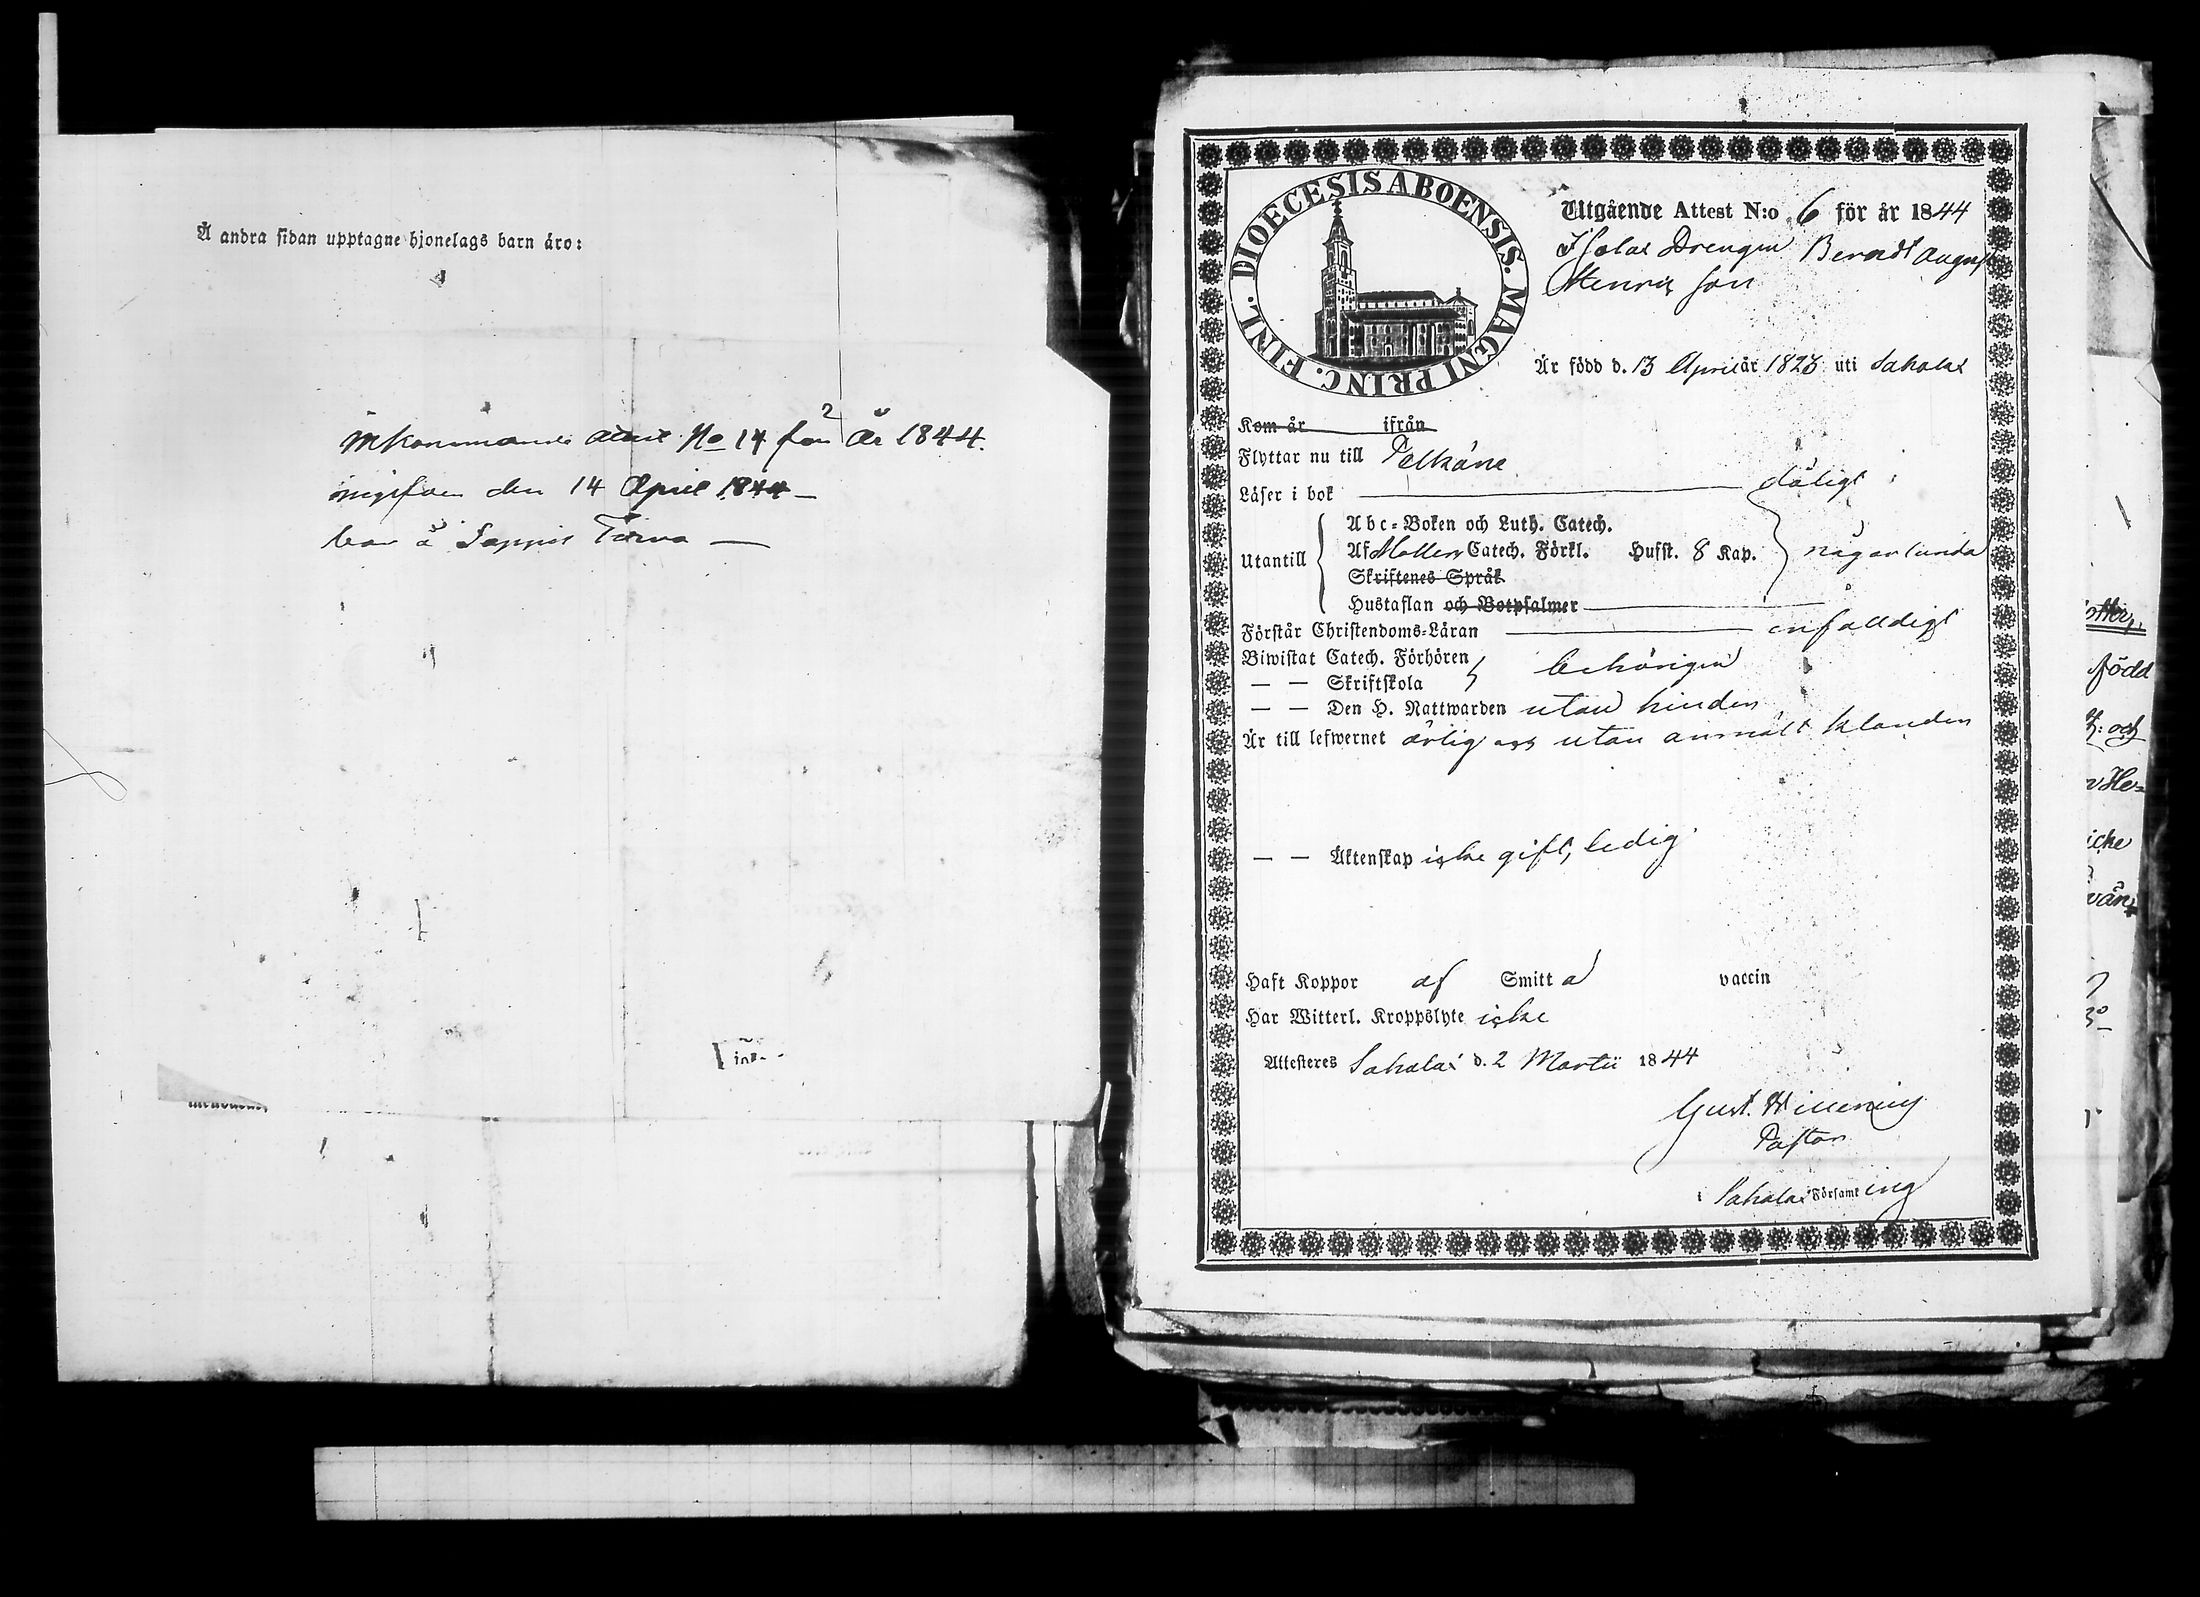 Å andra sidan upptagne hjonelags barn äro:
2
inkommande attest No 14 för år 1844.
ingifven den 14 April 1844 —
bor å Seppis Torva —
DIOECESIS ABOENSIS. MAGNI PRINC. FINL.
Utgående Attest N:o 6 för år 1844
Drengen Berndt August
Henrics son
Är född d. 13 April år 1823 uti Sahalax
Kom år ifrån
Flyttar nu till Pelkäne
Läser i bok — dåligt
Utantill
Abc-Boken och Luth. Catech.
Af Mollers Catech. Förkl. Husst. 8 Kap. någorlunda
Skriftenes Språk
Hustaflan och Botpsalmer —
Förstår Christendoms-Läran — enfaldigt
Biwistat Catech. Förhören behörigen
— — Skriftskola
— — Den H. Nattwarden utan hinder
Är till lefwernet ärlig och utan anmält klander
— — Äktenskap icke gift, ledig
Haft Koppor af Smitta vaccin
Har Witterl. Kroppslyte icke
Attesteres Sahalax d. 2 Martii 1844
Gust.
Pastor
i Sahalax Församling
född
och
He-
icke